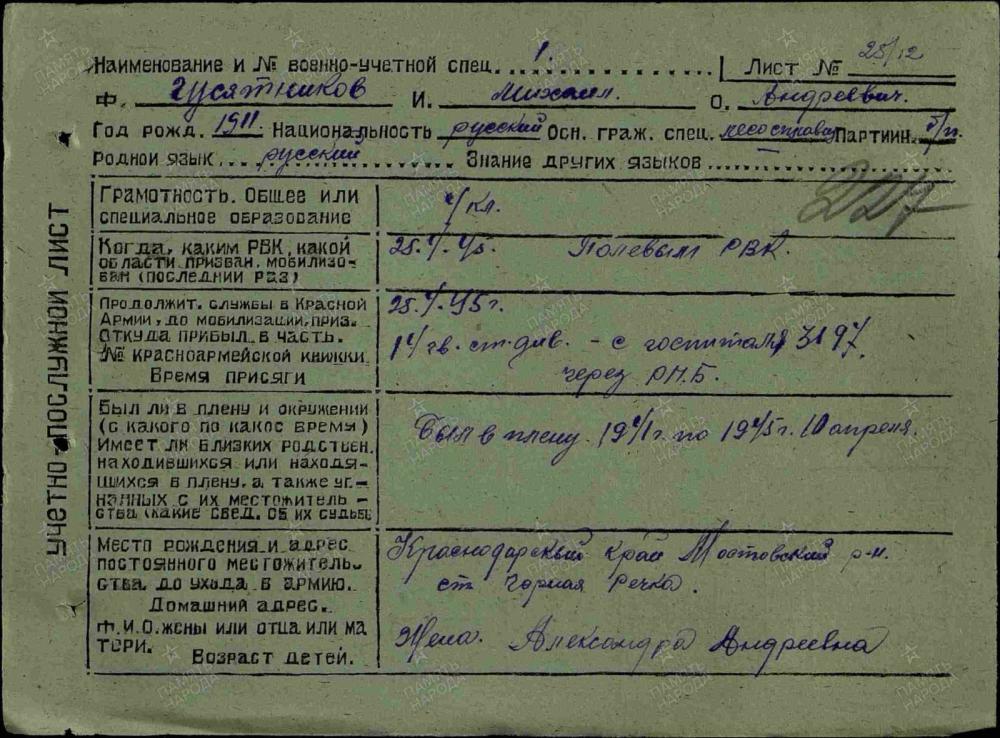 Наименование и № военно-учетной спец. 1. Лист № 25/12
Ф. Гусятников И. Михаил. О. Андреевич.
Год рожд. 1911. Национальность русский Осн. граж. спец. Партийн. б/п.
Родной язык русский Знание других языков
227
УЧЕТНО-ПОСЛУЖНОЙ ЛИСТ
Грамотность. Общее или
специальное образование
кл.
Когда, каким РВК, какой
области призван, мобилизо-
ван (последний раз)
Полевым РВК.
Продолжит. службы в Красной
Армии, до мобилизации, приз.
Откуда прибыл в часть.
№ красноармейской книжки.
Время присяги
45г.
14 гв. ст. див. - с госпиталя 3197
через
Был ли в плену и окружении
(с какого по какое время)
Имеет ли близких родствен.
находившихся или находя-
щихся в плену, а также уг-
нанных с их местожитель-
ства (какие свед. об их судьбе
Был в плену. 1941г. по 1945г. 10 апреля.
Место рождения и адрес
постоянного местожитель-
ства до ухода в армию.
Домашний адрес.
Ф.И.О. жены или отца или ма
тери.
Возраст детей.
Краснодарский край Мостовский р-н.
ст. Чорная речка.
Жена. Александра Андреевна